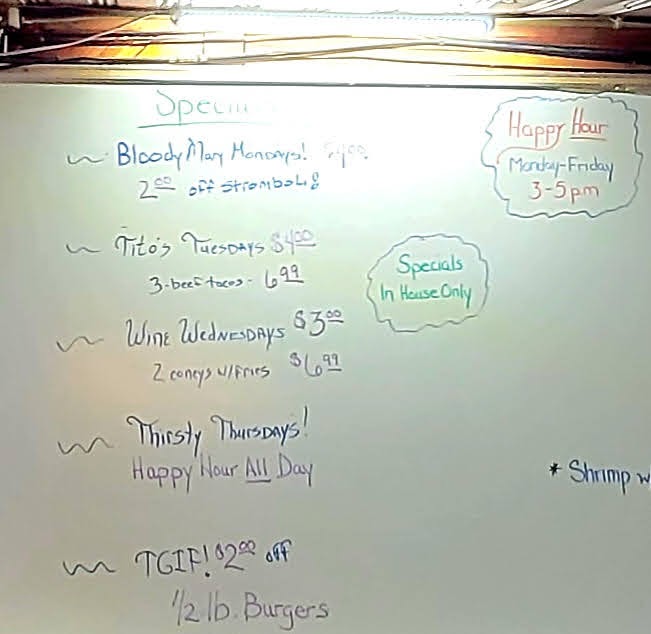 Specials
Bloody Mary Mondays! $4.00
2.00 off stromboli
Tito's Tuesdays $4.00
3-beef tacos - 6.99
Wine Wednesdays $3.00
2 coneys w/fries $6.99
Thirsty Thursdays!
Happy Hour All Day
TGIF! $2.00 off
1/2 lb. Burgers
Happy Hour
Monday-Friday
3-5pm
Specials
In House Only
* Shrimp w